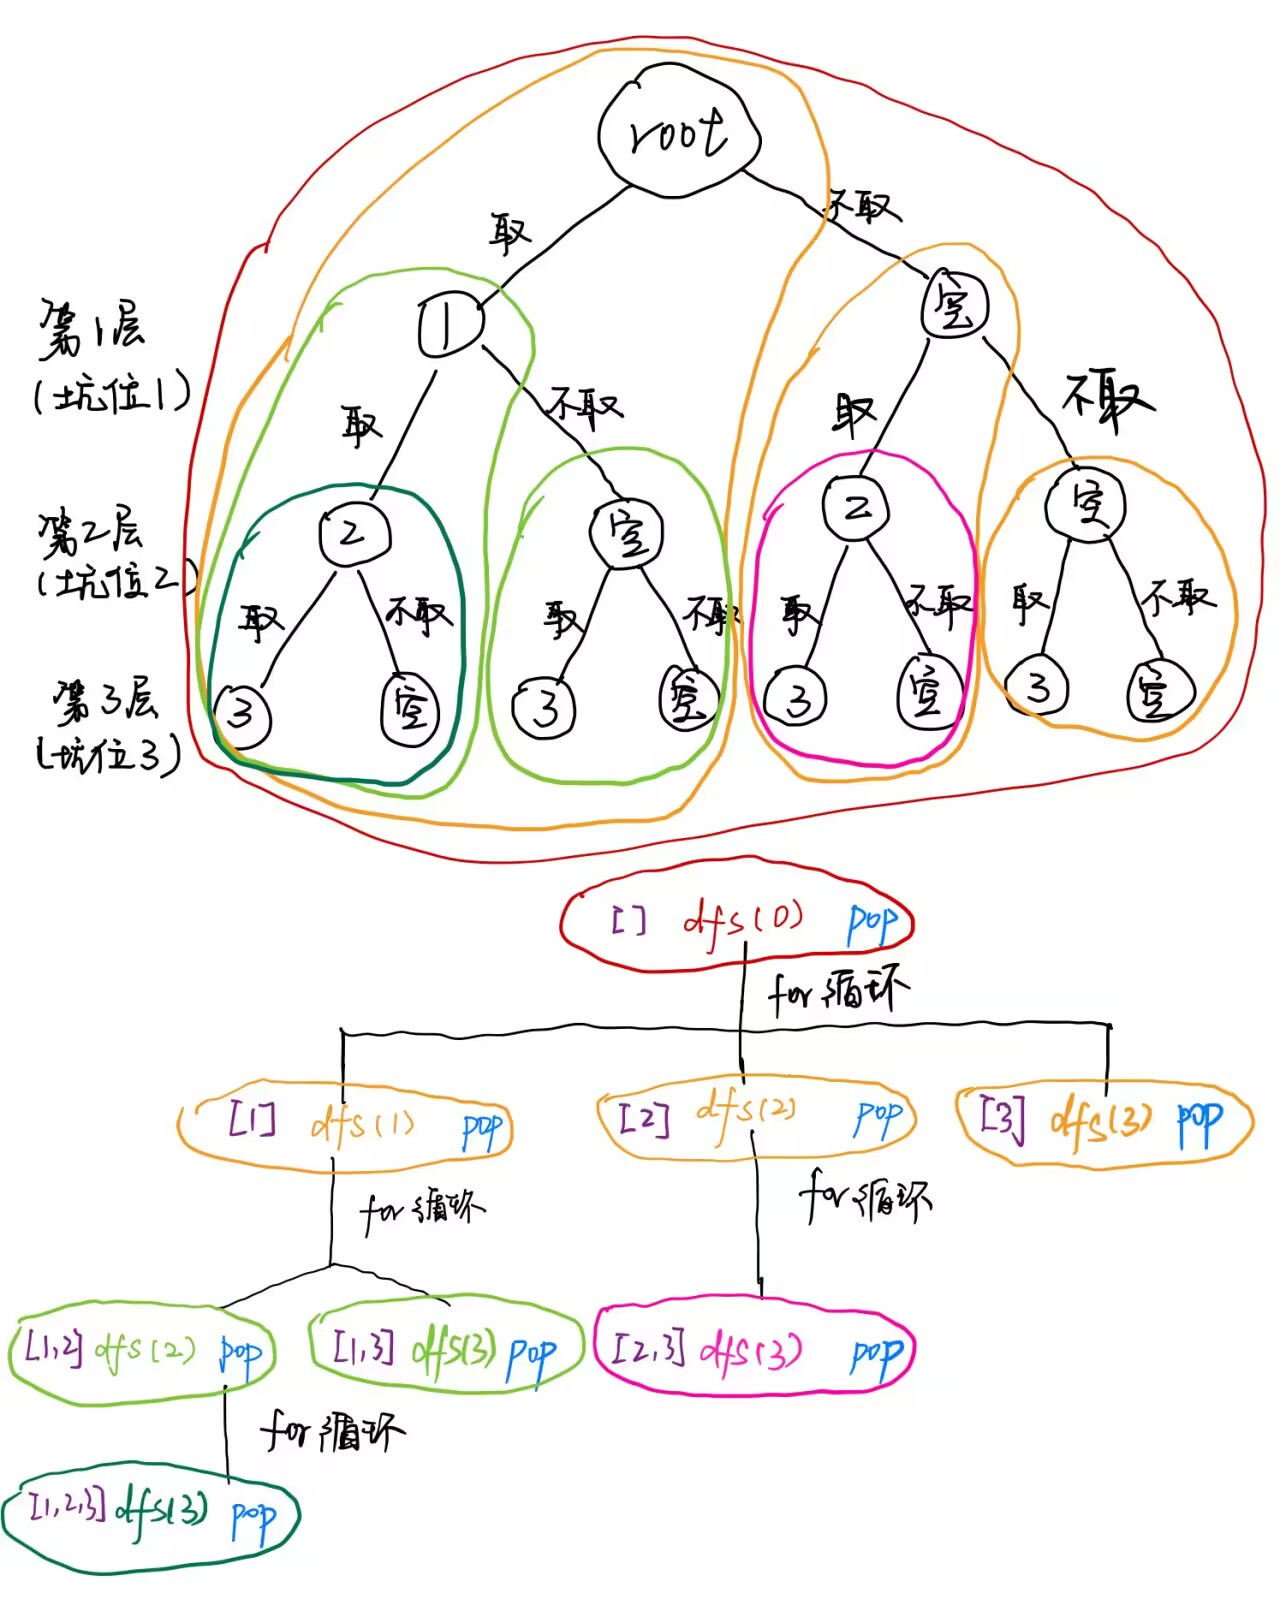 root
取 不取
第1层
(坑位1)
1 空
取 不取 取 不取
第2层
(坑位2)
2 空 2 空
取 不取 取 不取 取 不取 取 不取
第3层
(坑位3)
3 空 3 空 3 空 3 空
[] dfs(0) pop
for循环
[1] dfs(1) pop [2] dfs(2) pop [3] dfs(3) pop
for循环 for循环
[1,2] dfs(2) pop [1,3] dfs(3) pop [2,3] dfs(3) pop
for循环
[1,2,3] dfs(3) pop